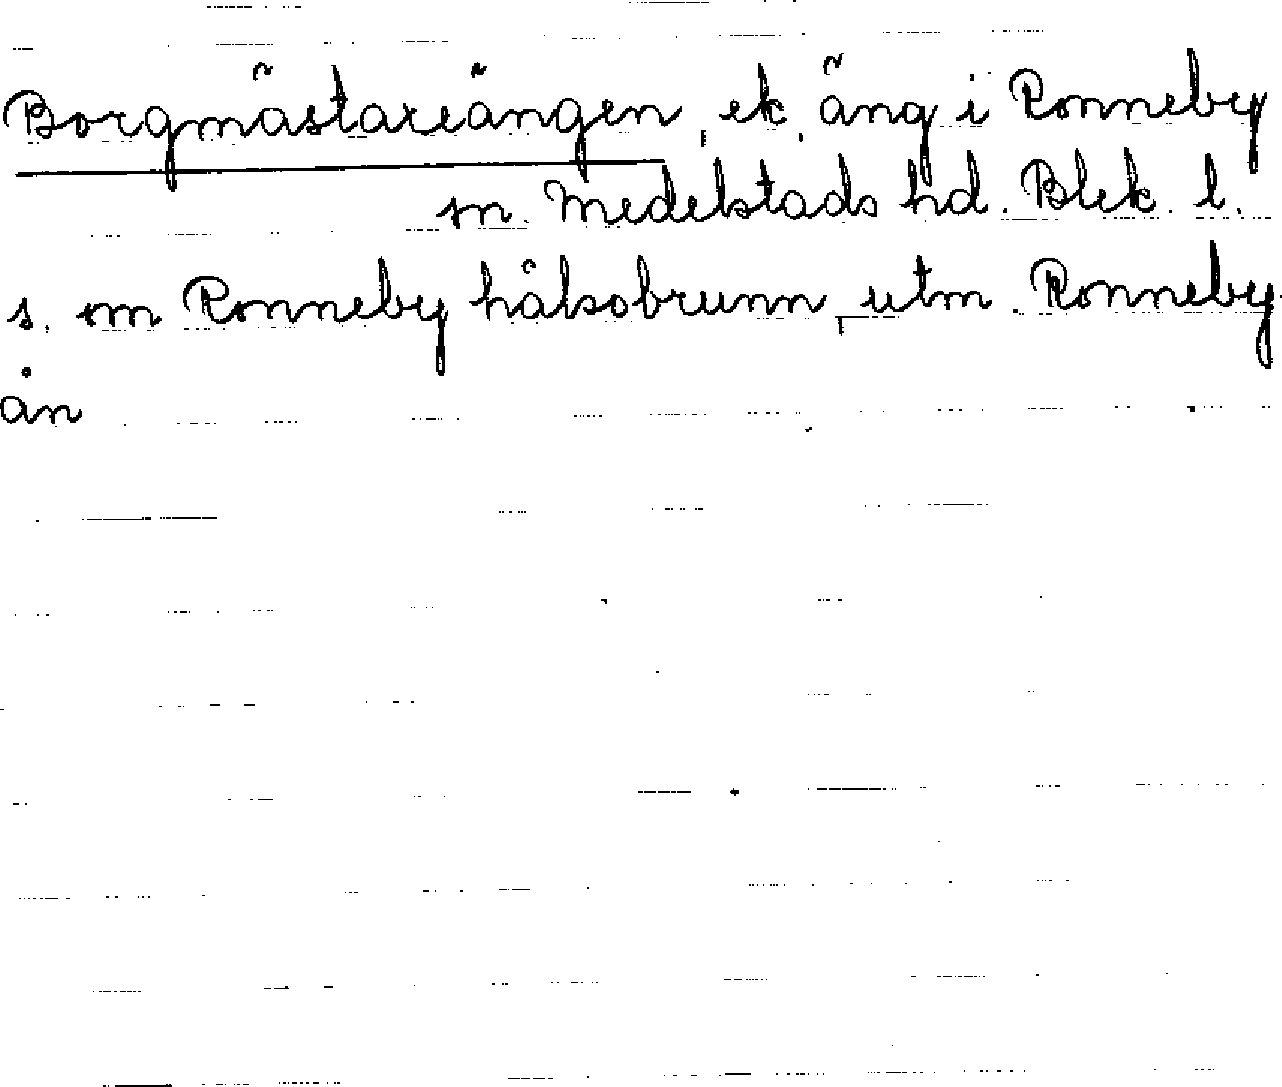 Borgmästareängen, ek. äng i Ronneby
sn. Medelstads hd. Blek. l.
s. om Ronneby hälsobrunn, utm. Ronneby-
ån